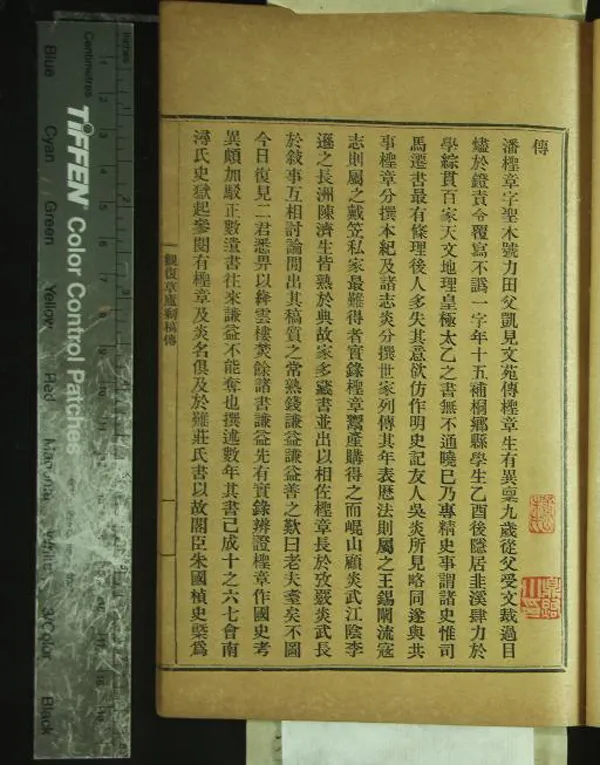 傳
潘檉章字聖木號力田父凱見文苑傳檉章生有異稟九歲從父受文裁過目
燼於鐙責令覆寫不譌一字年十五補桐鄉縣學生乙酉後隱居韭溪肆力於
學綜貫百家天文地理皇極太乙之書無不通曉已乃專精史事謂諸史惟司
馬遷書最有條理後人多失其意欲仿作明史記友人吳炎所見略同遂與共
事檉章分撰本紀及諸志炎分撰世家列傳其年表曆法則屬之王錫闡流寇
志則屬之戴笠私家最難得者實錄檉章鬻產購得之而崐山顧炎武江陰李
遜之長洲陳濟生皆熟於典故家多藏書並出以相佐檉章長於攷覈炎武長
於敘事互相討論間出其稿質之常熟錢謙益謙益善之歎曰老夫耄矣不圖
今日復見二君悉畀以絳雲樓焚餘諸書謙益先有實錄辨證檉章作國史考
異頗加駁正數遺書往來謙益不能奪也撰述數年其書已成十之六七會南
潯氏史獄起參閱有檉章及炎名俱及於難莊氏書以故閣臣朱國楨史槩為
觀復草廬剩稿傳
Inches
Centimetres
TIFFEN Color Control Patches
Blue
Cyan
Green
Yellow
Red
Magenta
White
3/Color
Black